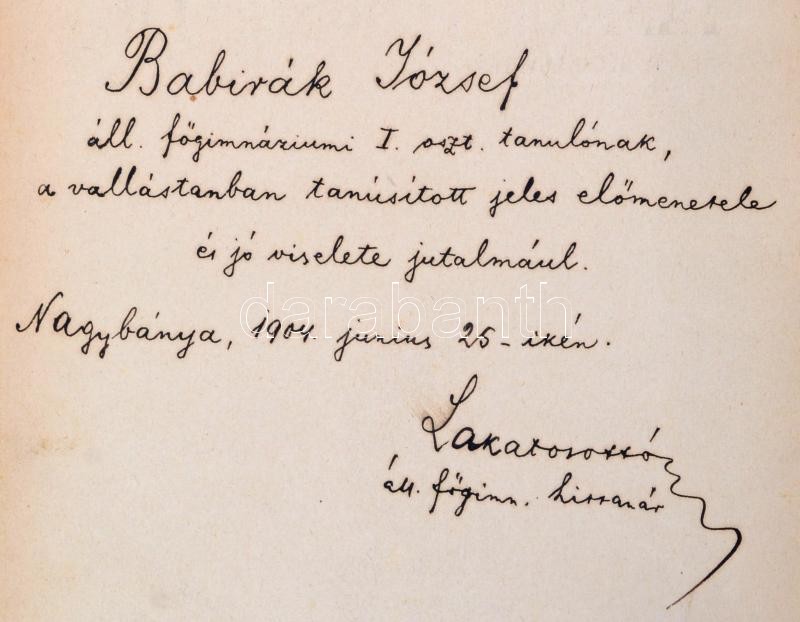 Babirák József
áll. főgimnáziumi I. oszt. tanulónak,
a vallástanban tanúsított jeles előmenetele
és jó viselete jutalmául.
darabanth
Nagybánya, 1904 junius 25-ikén.
Lakatos Ottó
áll. főgimn. hittanár